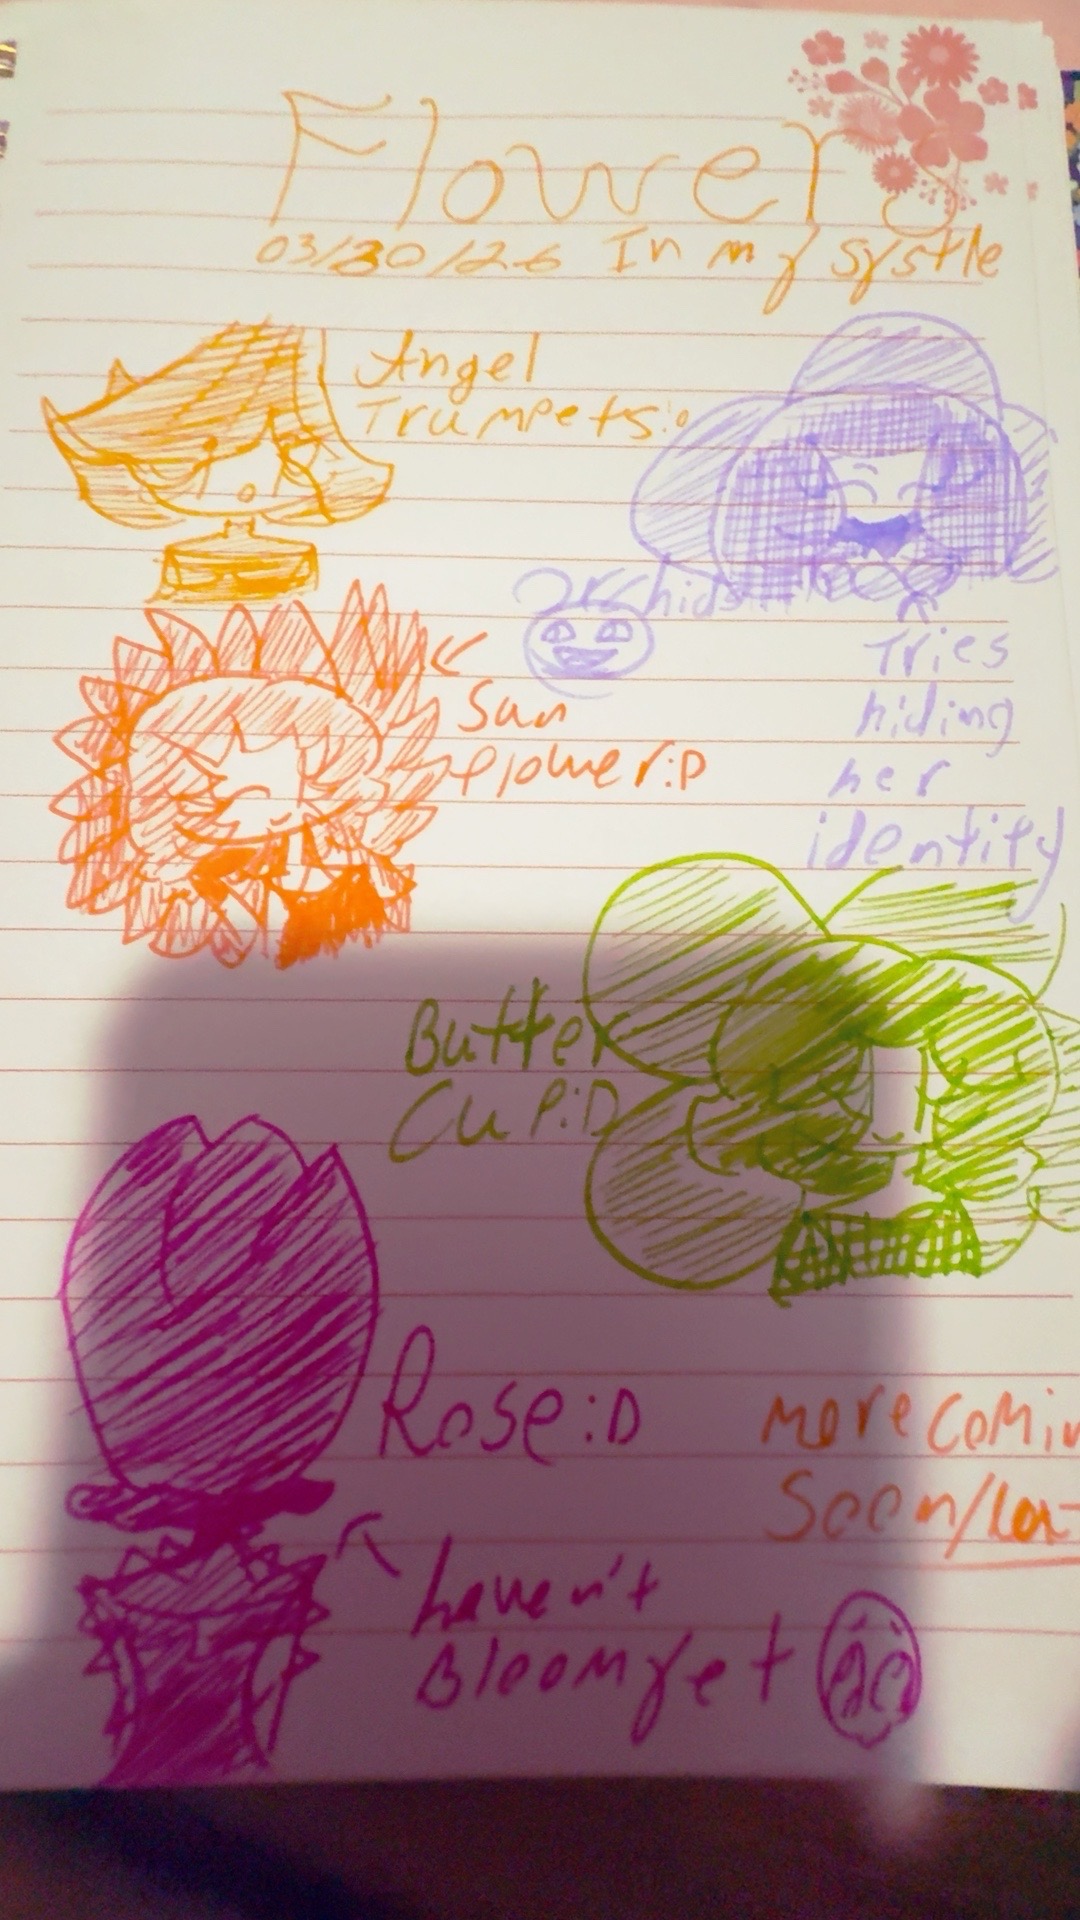 Flowers
03/30/26 In my systle
Angel
Trumpets:o
Orchids
Tries
hiding
her
identity
Sun
flower:D
Butter
Cup:D
Rose:D
more comin
Soon/
haven't
Bloom yet